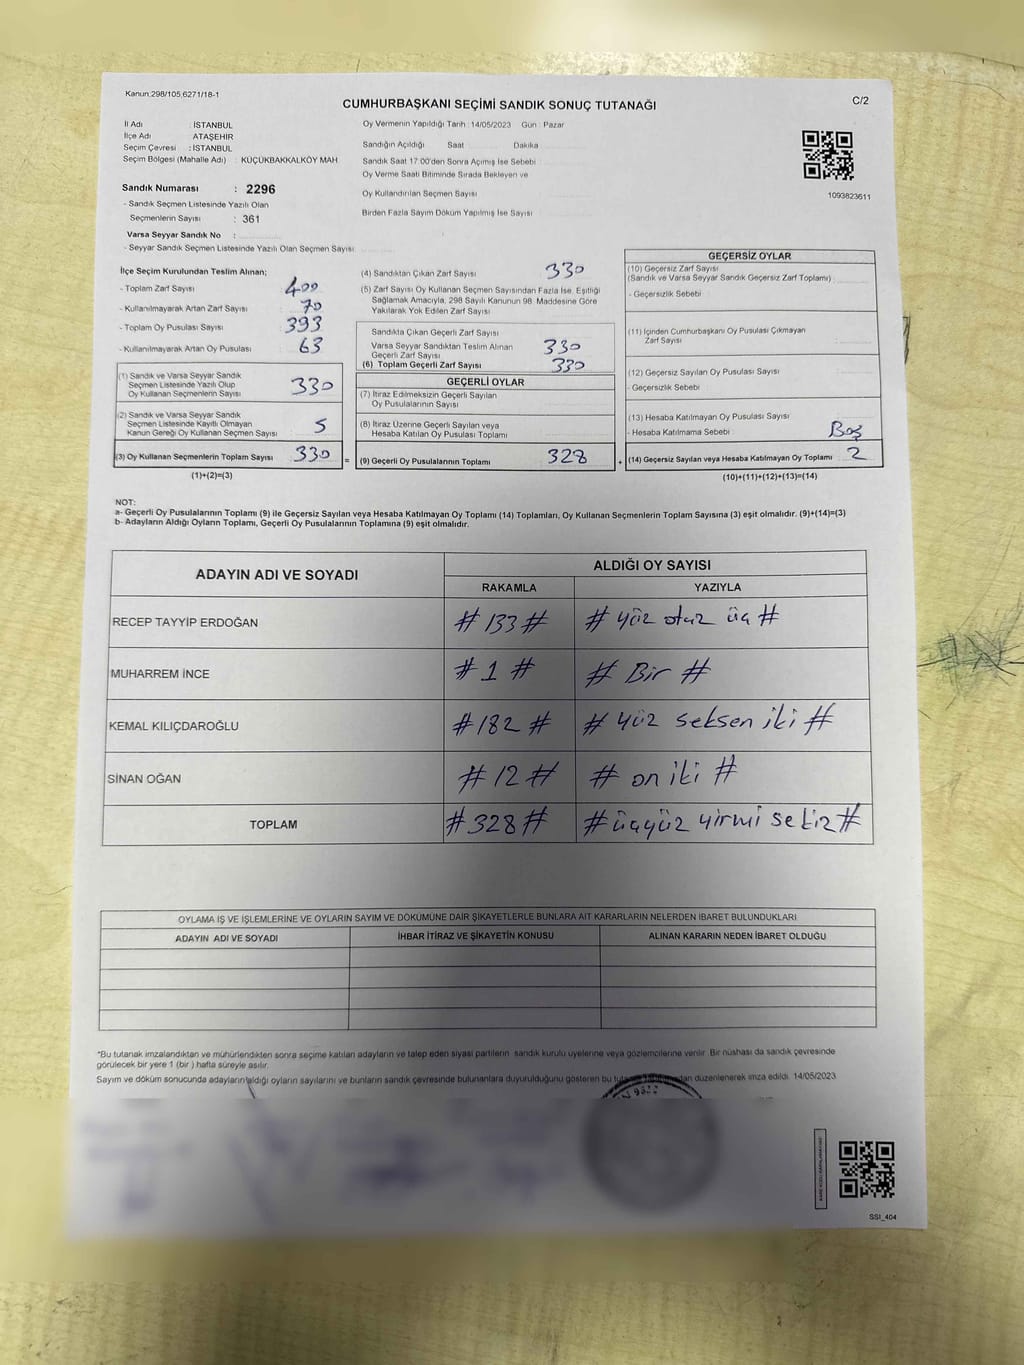 Kanun,298/105,6271/18-1
CUMHURBAŞKANI SEÇİMİ SANDIK SONUÇ TUTANAĞI
C/2
İl Adı : İSTANBUL
İlçe Adı ATAŞEHİR
Seçim Çevresi : İSTANBUL
Seçim Bölgesi (Mahalle Adı) : KÜÇÜKBAKKALKÖY MAH
Sandık Numarası : 2296
- Sandık Seçmen Listesinde Yazılı Olan
Seçmenlerin Sayısı : 361
Varsa Seyyar Sandık No :
- Seyyar Sandık Seçmen Listesinde Yazılı Olan Seçmen Sayısı
Oy Vermenin Yapıldığı Tarih : 14/05/2023 Gün : Pazar
Sandığın Açıldığı Saat Dakika
Sandık Saat 17:00'den Sonra Açılmış İse Sebebi
Oy Verme Saati Bitiminde Sırada Bekleyen ve
Oy Kullandırılan Seçmen Sayısı
Birden Fazla Sayım Döküm Yapılmış İse Sayısı
1093823611
İlçe Seçim Kurulundan Teslim Alınan;
- Toplam Zarf Sayısı 400
- Kullanılmayarak Artan Zarf Sayısı 70
- Toplam Oy Pusulası Sayısı 393
- Kullanılmayarak Artan Oy Pusulası 63
(1) Sandık ve Varsa Seyyar Sandık
Seçmen Listesinde Yazılı Olup
Oy Kullanan Seçmenlerin Sayısı 330
(2) Sandık ve Varsa Seyyar Sandık
Seçmen Listesinde Kayıtlı Olmayan
Kanun Gereği Oy Kullanan Seçmen Sayısı 5
(3) Oy Kullanan Seçmenlerin Toplam Sayısı 330 =
(1)+(2)=(3)
(4) Sandıktan Çıkan Zarf Sayısı 330
(5) Zarf Sayısı Oy Kullanan Seçmen Sayısından Fazla İse, Eşitliği
Sağlamak Amacıyla, 298 Sayılı Kanunun 98. Maddesine Göre
Yakılarak Yok Edilen Zarf Sayısı
Sandıkta Çıkan Geçerli Zarf Sayısı
Varsa Seyyar Sandıktan Teslim Alınan
Geçerli Zarf Sayısı 330
(6) Toplam Geçerli Zarf Sayısı 330
GEÇERLİ OYLAR
(7) İtiraz Edilmeksizin Geçerli Sayılan
Oy Pusulalarının Sayısı
(8) İtiraz Üzerine Geçerli Sayılan veya
Hesaba Katılan Oy Pusulası Toplamı
(9) Geçerli Oy Pusulalarının Toplamı 328 +
GEÇERSİZ OYLAR
(10) Geçersiz Zarf Sayısı
(Sandık ve Varsa Seyyar Sandık Geçersiz Zarf Toplamı)
- Geçersizlik Sebebi
(11) İçinden Cumhurbaşkanı Oy Pusulası Çıkmayan
Zarf Sayısı
(12) Geçersiz Sayılan Oy Pusulası Sayısı
- Geçersizlik Sebebi
(13) Hesaba Katılmayan Oy Pusulası Sayısı
- Hesaba Katılmama Sebebi Boş
(14) Geçersiz Sayılan veya Hesaba Katılmayan Oy Toplamı 2
(10)+(11)+(12)+(13)=(14)
NOT:
a- Geçerli Oy Pusulalarının Toplamı (9) ile Geçersiz Sayılan veya Hesaba Katılmayan Oy Toplamı (14) Toplamları, Oy Kullanan Seçmenlerin Toplam Sayısına (3) eşit olmalıdır. (9)+(14)=(3)
b- Adayların Aldığı Oyların Toplamı, Geçerli Oy Pusulalarının Toplamına (9) eşit olmalıdır.
ADAYIN ADI VE SOYADI
ALDIĞI OY SAYISI
RAKAMLA YAZIYLA
RECEP TAYYİP ERDOĞAN # 133 # # yüz otuz üç #
MUHARREM İNCE # 1 # # Bir #
KEMAL KILIÇDAROĞLU # 182 # # yüz seksen iki #
SİNAN OĞAN # 12 # # on iki #
TOPLAM # 328 # # üçyüz yirmi sekiz #
OYLAMA İŞ VE İŞLEMLERİNE VE OYLARIN SAYIM VE DÖKÜMÜNE DAİR ŞİKAYETLERLE BUNLARA AİT KARARLARIN NELERDEN İBARET BULUNDUKLARI
ADAYIN ADI VE SOYADI İHBAR İTİRAZ VE ŞİKAYETİN KONUSU ALINAN KARARIN NEDEN İBARET OLDUĞU
*Bu tutanak imzalandıktan ve mühürlendikten sonra seçime katılan adayların ve talep eden siyasi partilerin sandık kurulu üyelerine veya gözlemcilerine verilir. Bir nüshası da sandık çevresinde
görülecek bir yere 1 (bir ) hafta süreyle asılır.
Sayım ve döküm sonucunda adayların aldığı oyların sayılarını ve bunların sandık çevresinde bulunanlara duyurulduğunu gösteren bu düzenlenerek imza edildi. 14/05/2023
SSI_404